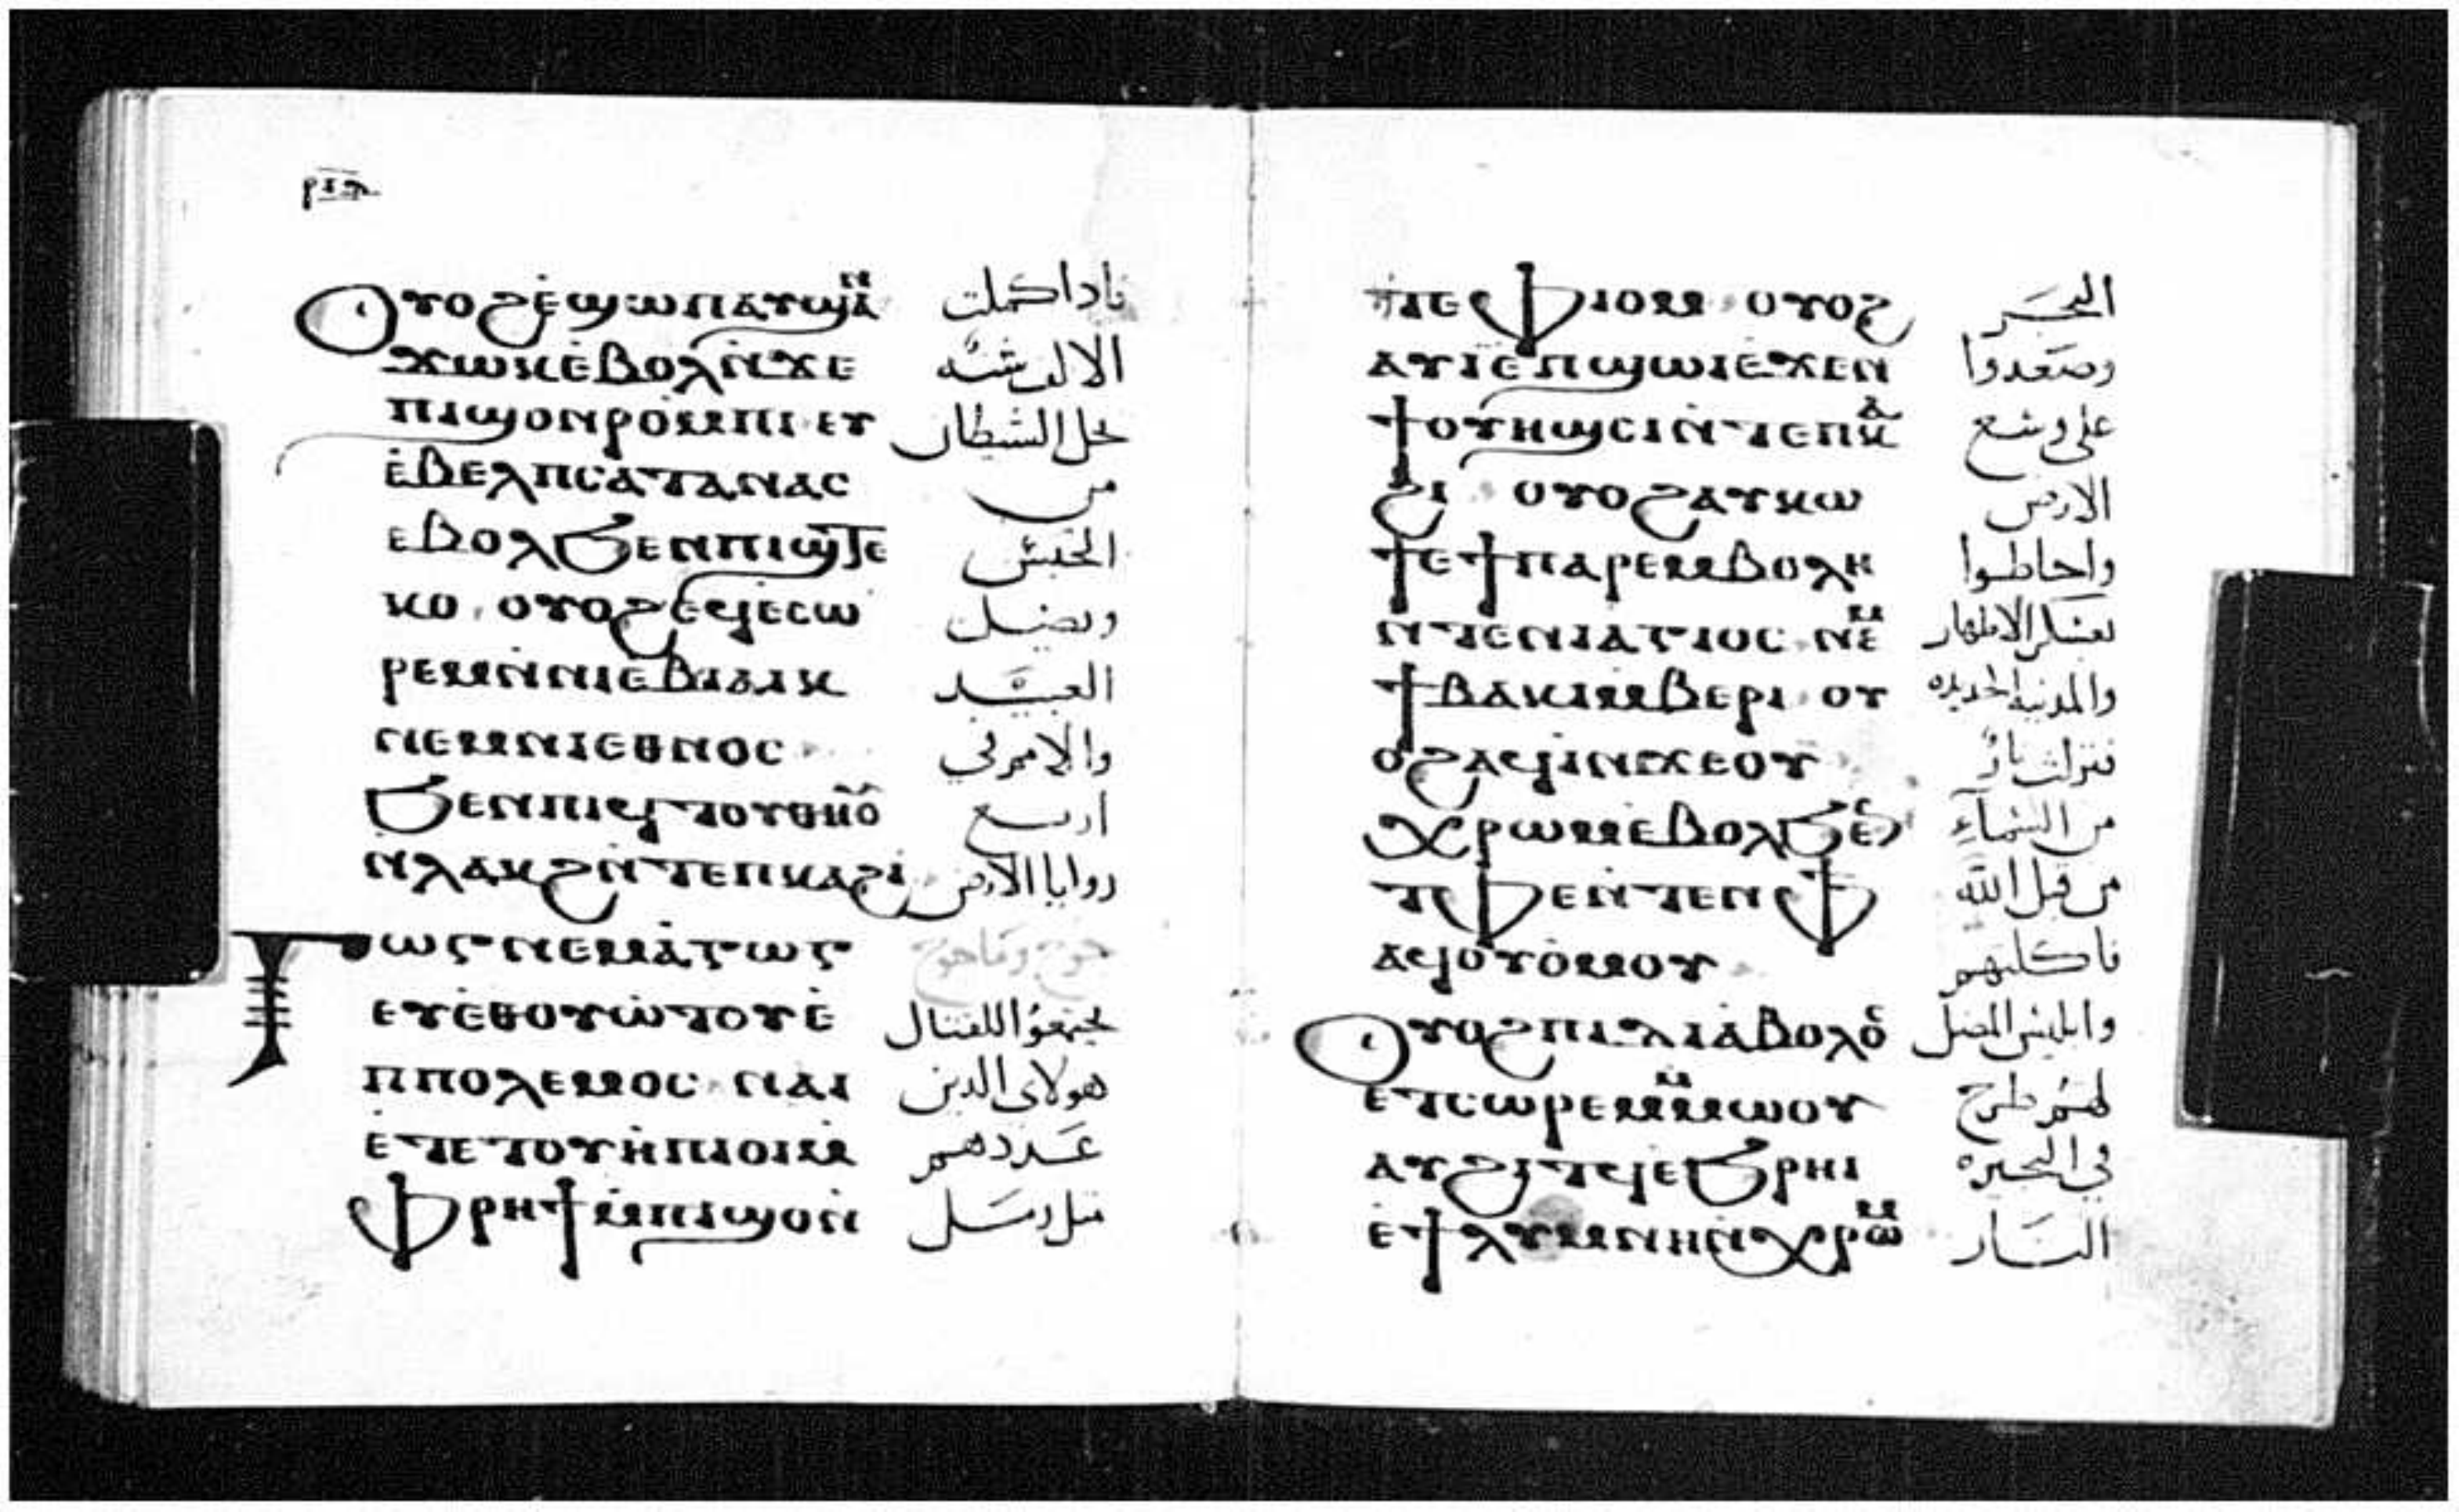 Ⲟⲩⲟϩ ⲉ̀ϣⲱⲡ ⲁⲩϣⲁⲛ فاداكملت
ϫⲱⲕ ⲉ̀ⲃⲟⲗ ⲛ̀ϫⲉ الالف سنه
ⲡⲓϣⲟ ⲛⲣⲟ̀ⲙⲡⲓ ⲉⲩ يحل الشيطان
ⲉ̀ⲃⲉⲗ ⲡⲥⲁⲧⲁⲛⲁⲥ من
ⲉⲃⲟⲗ ϧⲉⲛ ⲡⲓϣⲧⲉ الحبس
ⲕⲟ ⲟⲩⲟϩ ⲉϥⲉⲥⲱ ويضل
ⲣⲉⲙ ⲛ̀ⲛⲓⲉⲃⲓⲁⲓⲕ العبيد
ⲛⲉⲙ ⲛⲓⲉⲑⲛⲟⲥ والامم في
ϧⲉⲛ ⲡⲓϥⲧⲟⲩ اربع
ⲛⲗⲁⲕϩ ⲛ̀ⲧⲉ ⲡⲕⲁϩⲓ زوايا الارض
Ⲅⲱⲅ ⲛⲉⲙⲁ̀ⲅⲱⲅ جوج وماجوج
ⲉⲩⲉ̀ⲑⲟⲩⲱ̀ⲧⲟⲩ ⲉ̀ يجتمعوا للقتال
ⲡⲡⲟⲗⲉⲙⲟⲥ ⲛⲁⲓ هولاى الدين
ⲉⲧⲉ ⲧⲟⲩⲏ̀ⲡⲓ ⲟⲓ ⲙ عددهم
ⲫⲣⲏϯ ⲙ̀ⲡⲓϣⲟ ⲛ̀ مثل رمل
ⲧⲉ ⲫⲓⲟⲙ ⲟⲩⲟϩ البحر
ⲁⲩⲓ ⲉ̀ⲡϣⲱⲓ ⲉϫⲉⲛ وصعدوا
ϯⲟⲩⲏϣⲥⲓ ⲛ̀ⲧⲉ ⲡⲕⲁ على وسع
ϩⲓ ⲟⲩⲟϩ ⲁⲩⲕⲱ الارض
ϯ ⲉϯⲡⲁⲣⲉⲙⲃⲟⲗⲏ واحاطوا
ⲛⲧⲉ ⲛⲓⲁⲅⲓⲟⲥ ⲛⲉⲙ بعسكر الاطهار
ϯⲃⲁⲕⲓ ⲙⲃⲉⲣⲓ ⲟⲩ والمدينه الجديده
ⲟϩ ⲁϥⲓ̀ ⲛϫⲉ ⲟⲩ فنزلت نار
ⲭⲣⲱⲙ ⲉⲃⲟⲗ ϧⲉⲛ من السماء
ⲧⲫⲉ ⲛ̀ⲧⲉⲛ ⲫϯ من قبل الله
ⲁϥⲟⲩⲟ̀ⲙⲟⲩ فاكلتهم
Ⲟⲩⲟϩ ⲡⲓⲇⲓⲁⲃⲟⲗⲟⲥ وابليس المضل
ⲉⲧⲥⲱⲣⲉⲙ ⲙ̀ⲙⲱⲟⲩ لهم طرح
ⲁⲩϩⲓⲧϥ ⲉϧⲣⲏⲓ في البحيره
ⲉ̀ϯⲗⲩⲙⲛⲏ ⲛ̀ⲭⲣⲱⲙ النار